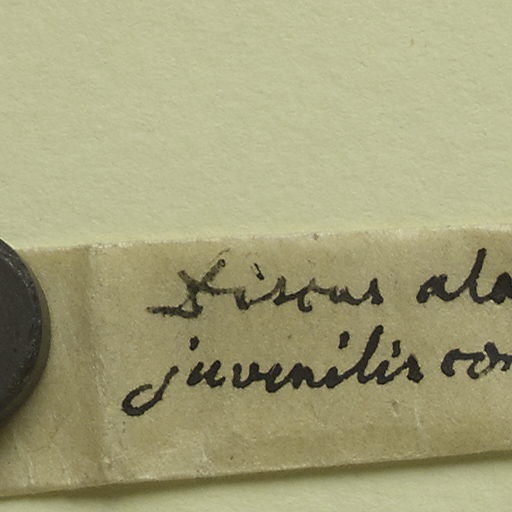 Discus ala
juvenilis con